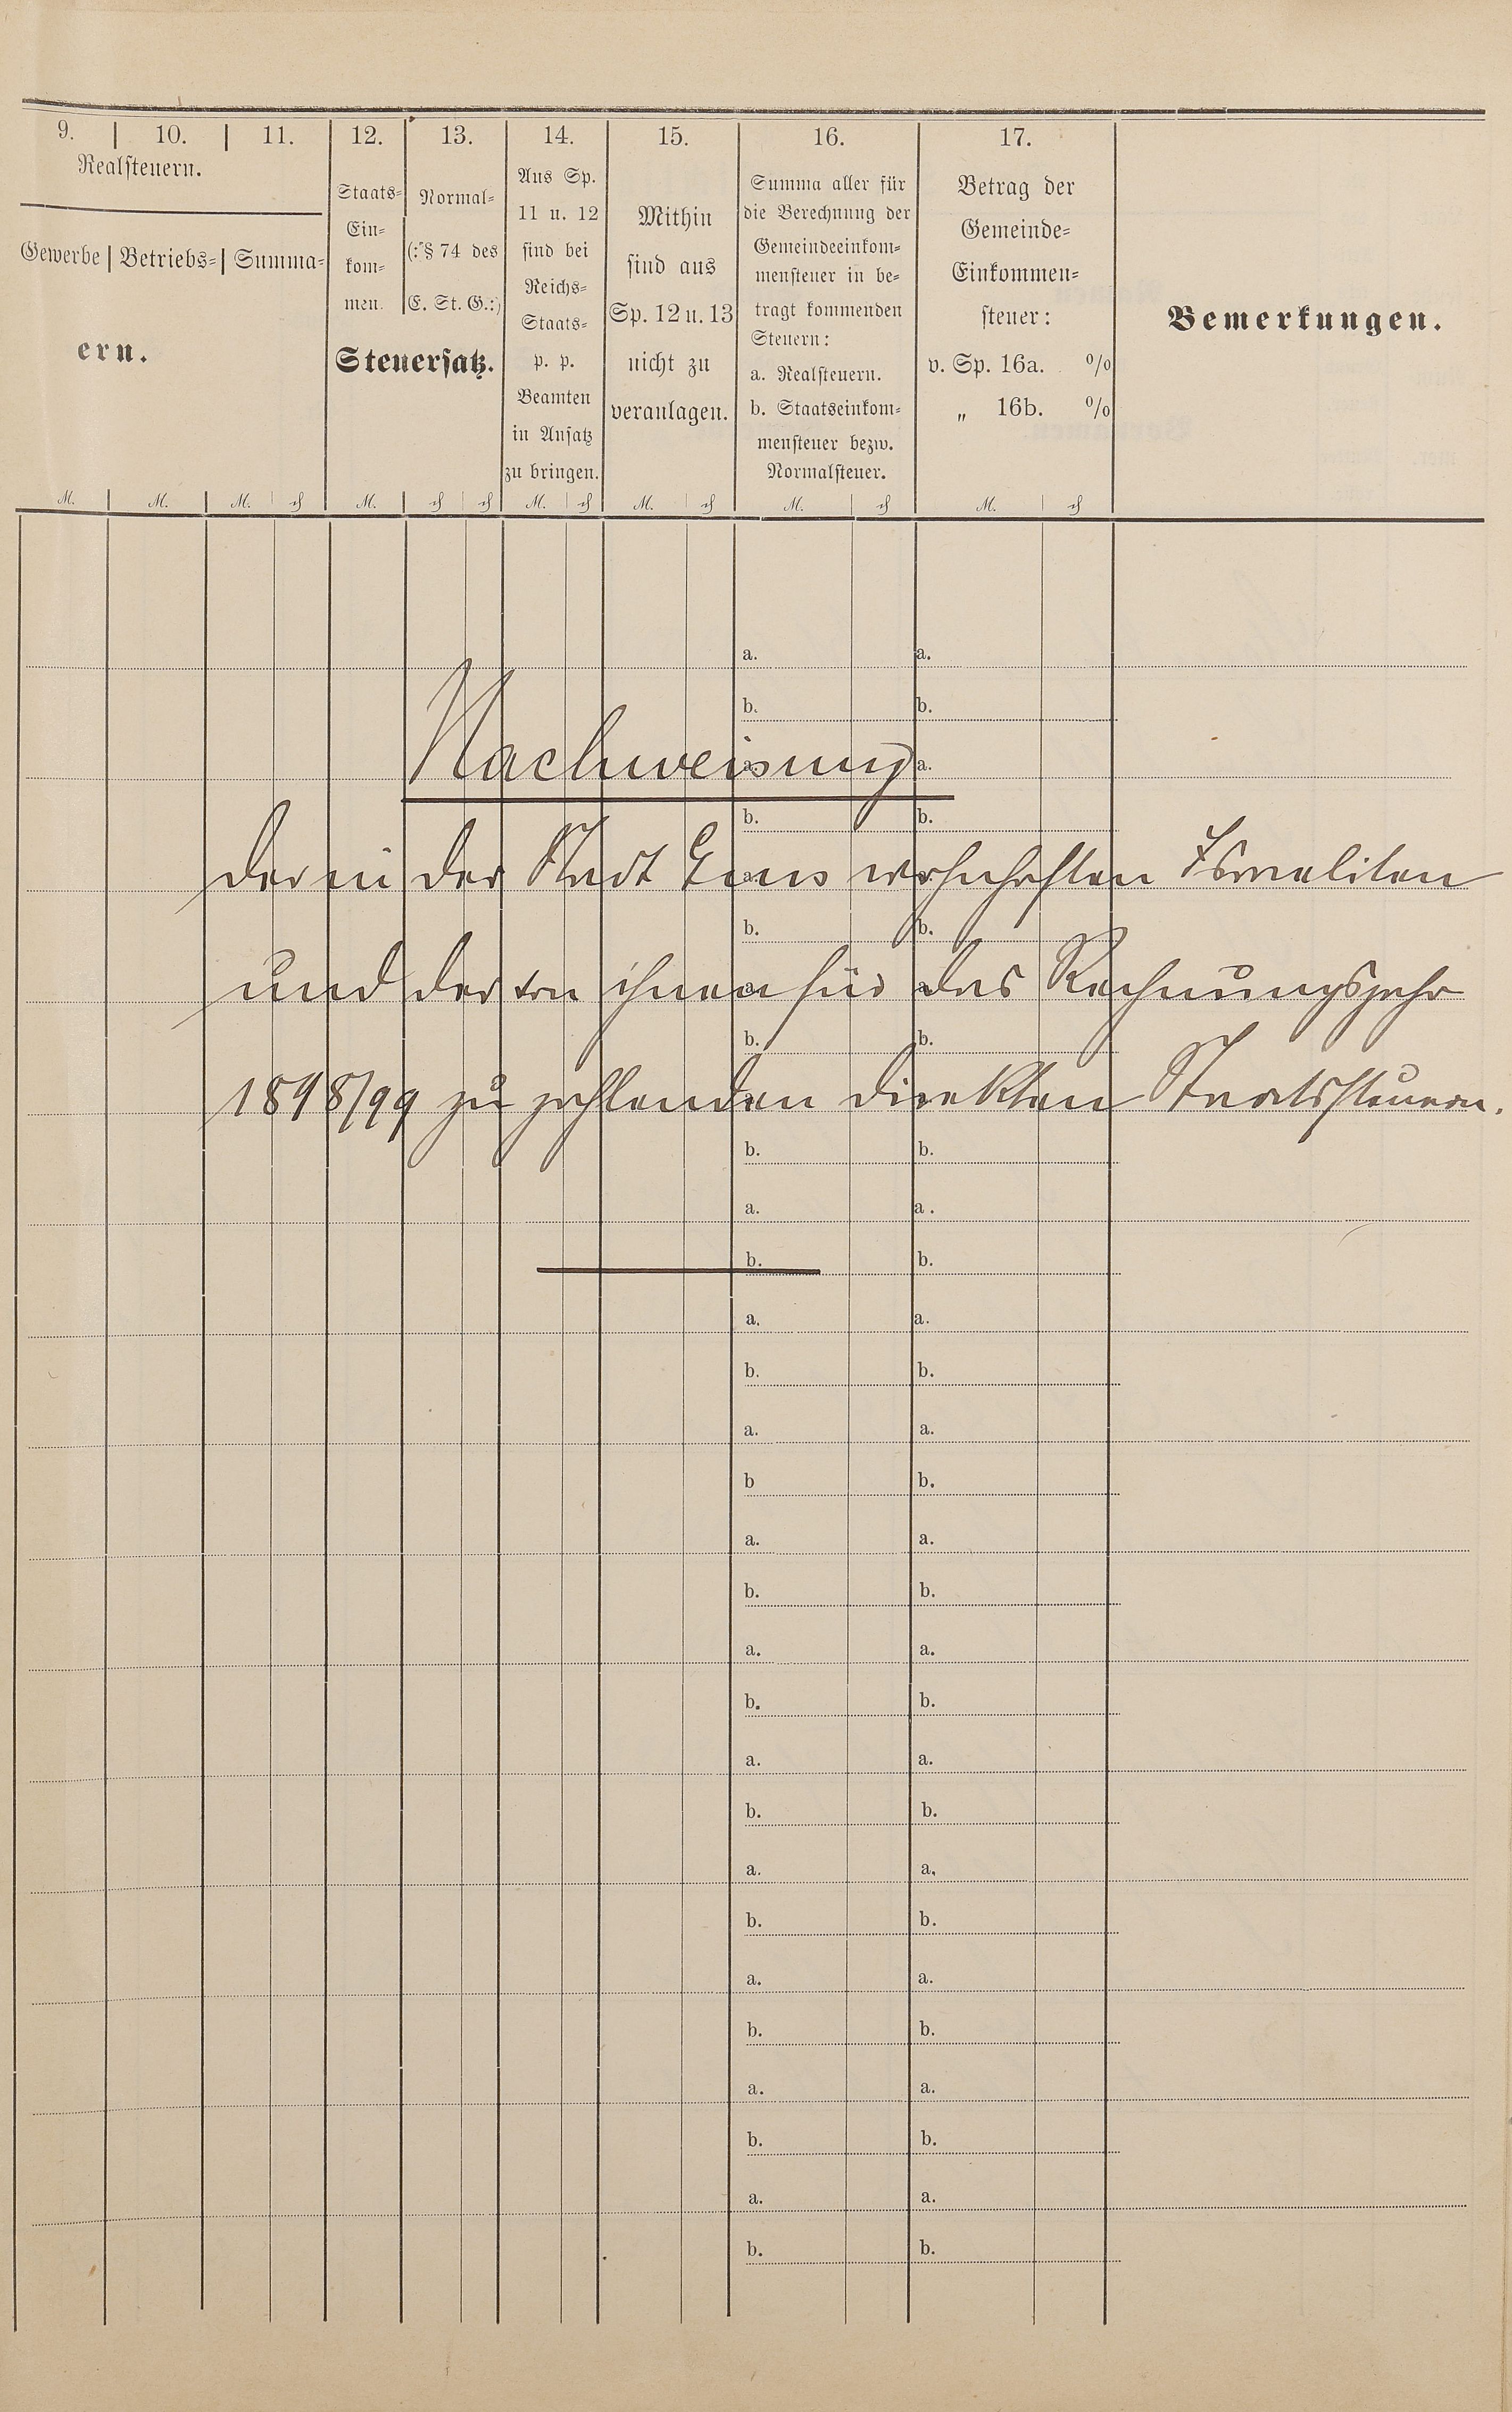 9. 10. 11. 12. 13. 14. 15. 16. 17.
Realsteuern.
Gewerbe Betriebs- Summa-
ern.
Staats-
Ein-
kom-
men.
Normal-
(: § 74 des
E. St. G.:)
Steuersatz.
Aus Sp.
11 u. 12
sind bei
Reichs-
Staats-
p. p.
Beamten
in Ansatz
zu bringen.
Mithin
sind aus
Sp. 12 u. 13
nicht zu
veranlagen.
Summa aller für
die Berechnung der
Gemeindeeinkom-
mensteuer in be-
tragt kommenden
Steuern:
a. Realsteuern.
b. Staatseinkom-
mensteuer bezw.
Normalsteuer.
Betrag der
Gemeinde-
Einkommen-
steuer:
v. Sp. 16a. %
„ 16b. %
Bemerkungen.
M. M. M. ₰ M. ₰ ₰ M. ₰ M. ₰ M. ₰ M. ₰
a. a.
b. b.
Nachweisung
a. a.
b. b.
der in der Stadt Ems wohnhaften Israeliten
a.
b. b.
und der von ihnen für das Rechnungsjahr
a. a.
b. b.
1898/99 zu zahlenden direkten Staatssteuern.
b. b.
a. a.
b. b.
a. a.
b. b.
a. a.
b b.
a. a.
b. b.
a. a.
b. b.
a. a.
b. b.
a. a.
b. b.
a. a.
b. b.
a. a.
b. b.
a. a.
b. b.